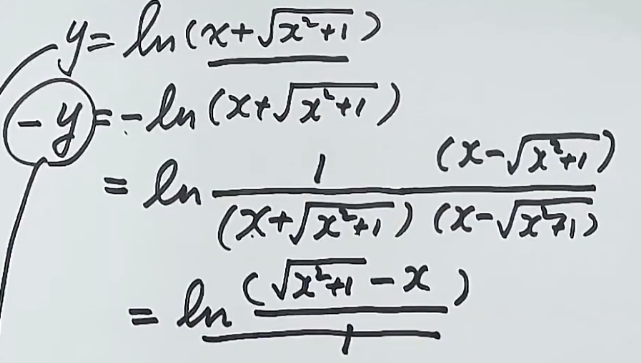 y = ln(x+√(x²+1))
-y = -ln(x+√(x²+1))
= ln 1 (x-√(x²+1)) / (x+√(x²+1)) (x-√(x²+1))
= ln (√(x²+1) - x) / 1